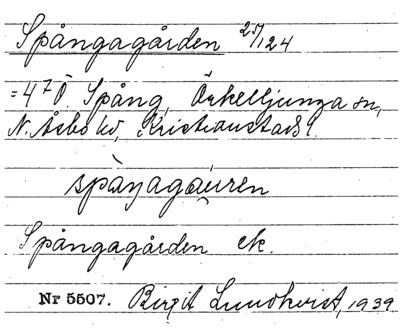 Spångagården 25/124
= 4⁷Ö. Spång, Örkelljunga sn,
N. Åsbo hd, Kristianstads l.
spåŋagáu̯ren
Spångagården ek.
Nr 5507. Birgit Lundkvist, 1939